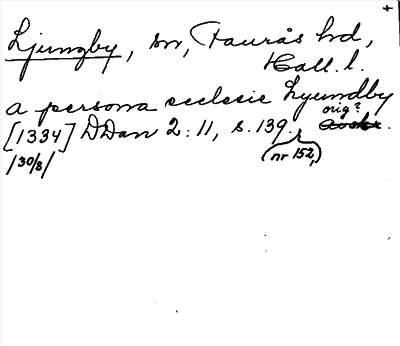 +
Ljungby, sn, Faurås hd,
Hall. l.
a persona ecclesie Lyundby
[1334] DDan 2:11, s. 139. orig?
/30/8/ (nr 152,)